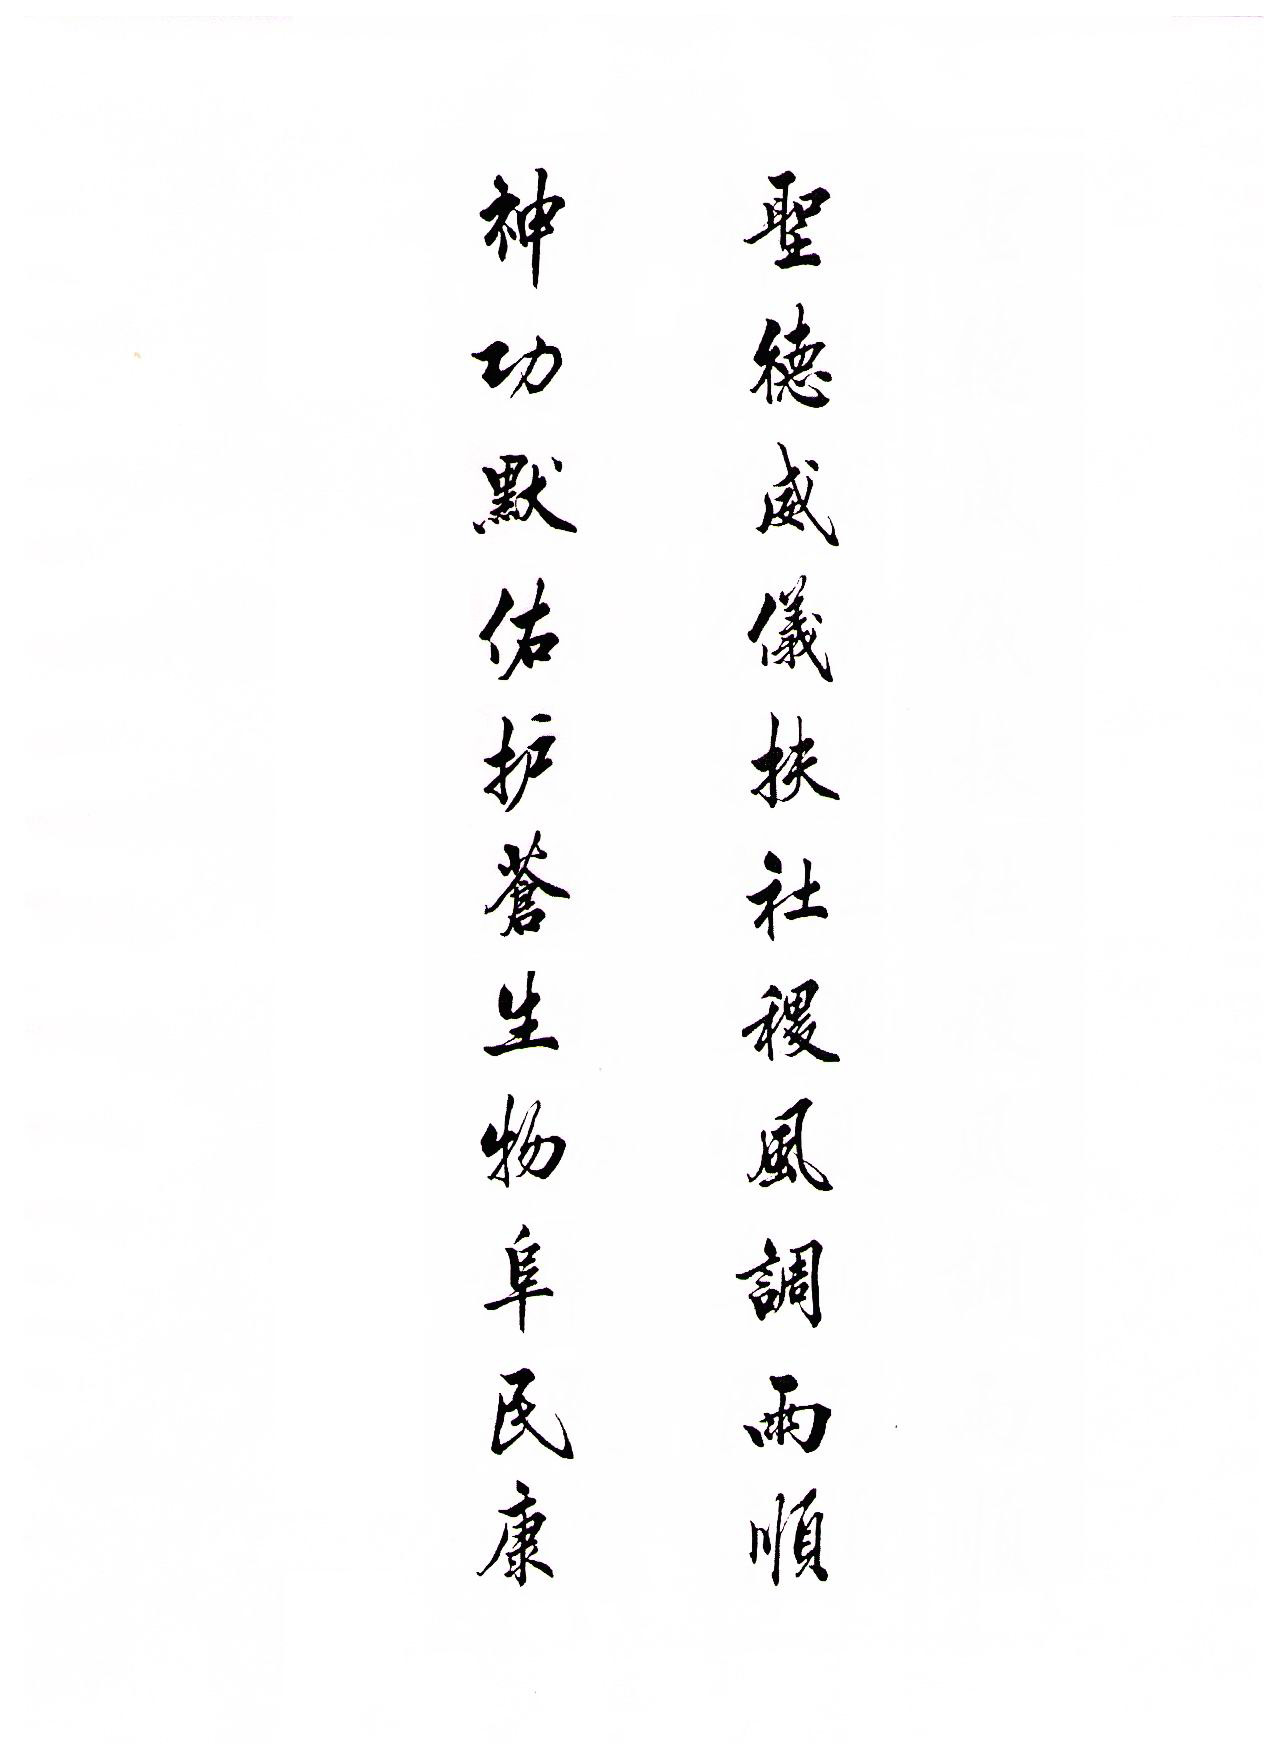 聖德威儀扶社稷風調雨順
神功默佑护蒼生物阜民康